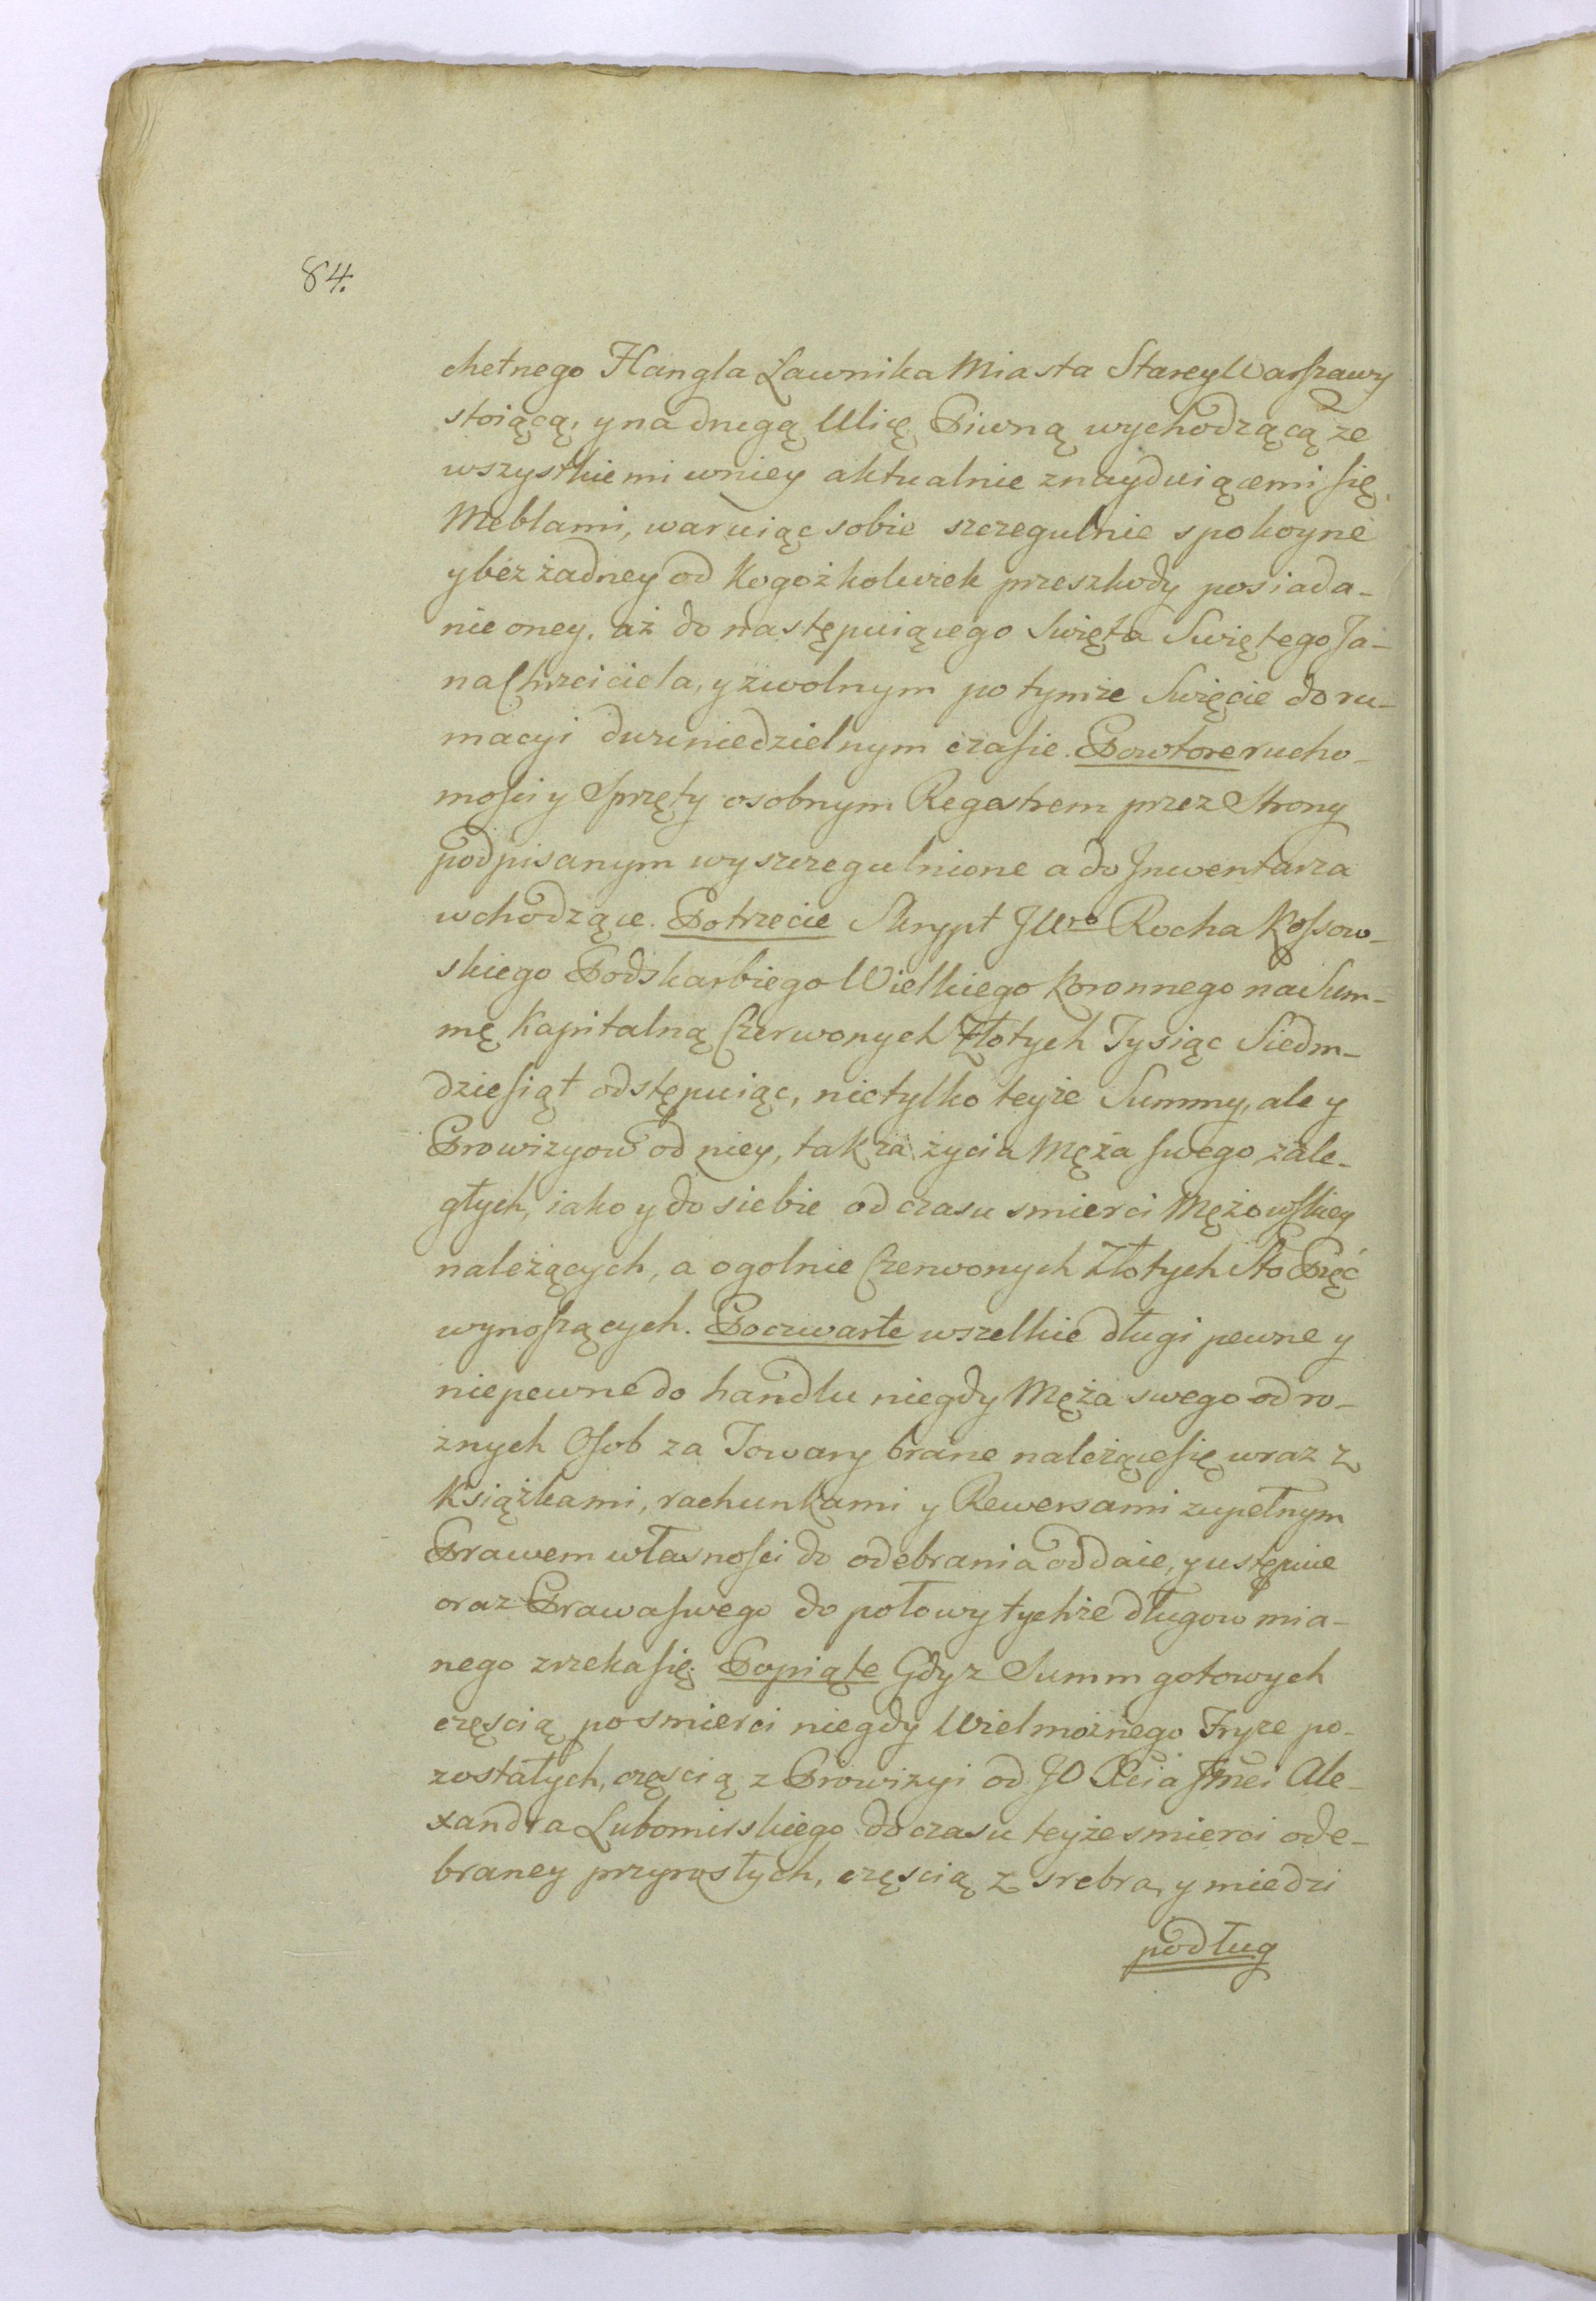 84.
chetnego Hangla Ławnika Miasta Starey Warszawy
stoiącą, y na drugą Ulicę Piwną wychodzącą ze
wszystkiemi w niey aktualnie znayduiącemi się
Meblami, waruiąc sobie szczegulnie spokoyne
y bez żadney od kogożkolwiek przeszkody posiada-
nie oney, aż do następuiącego Swięta Swiętego Ja-
na Chrzciciela, y zwolnym po tymże Swięcie do ru-
macyi dwuniedzielnym czasie. Powtore rucho-
mosci y Sprzęty osobnym Regestrem przez Strony
podpisanym wyszczegulnione a do Jnwentarza
wchodzące. Potrzecie Skrypt JWgo Rocha Kossow-
skiego Podskarbiego Wielkiego Koronnego na Sum-
mę Kapitalną Czerwonych Złotych Tysiąc Siedm-
dziesiąt odstępuiąc, nietylko teyże Summy, ale y
Prowizyow od niey, tak za życia Męża swego zale-
głych, iako y do siebie od czasu smierci Mężowskiey
należących, a ogolnie Czerwonych Złotych Sto Pięć
wynoszących. Poczwarte wszelkie długi pewne y
niepewne do handlu niegdy Męża swego od ro-
żnych Osob za Towary brane należące się wraz z
Książkami, rachunkami y Rewersami zupełnym
Prawem własnosci do odebrania oddaie, y ustępuie
oraz Prawa swego do połowy tychże długow mia-
nego zrzeka się. Popiąte Gdy z Summ gotowych
częścią po smierci niegdy Wielmożnego Fryze po-
zostałych, częscią z Prowizyi od JO Xcia Jmci Ale-
xandra Lubomirskiego do czasu teyże smierci ode-
braney przyrosłych, częscią z srebra, y miedzi
podług